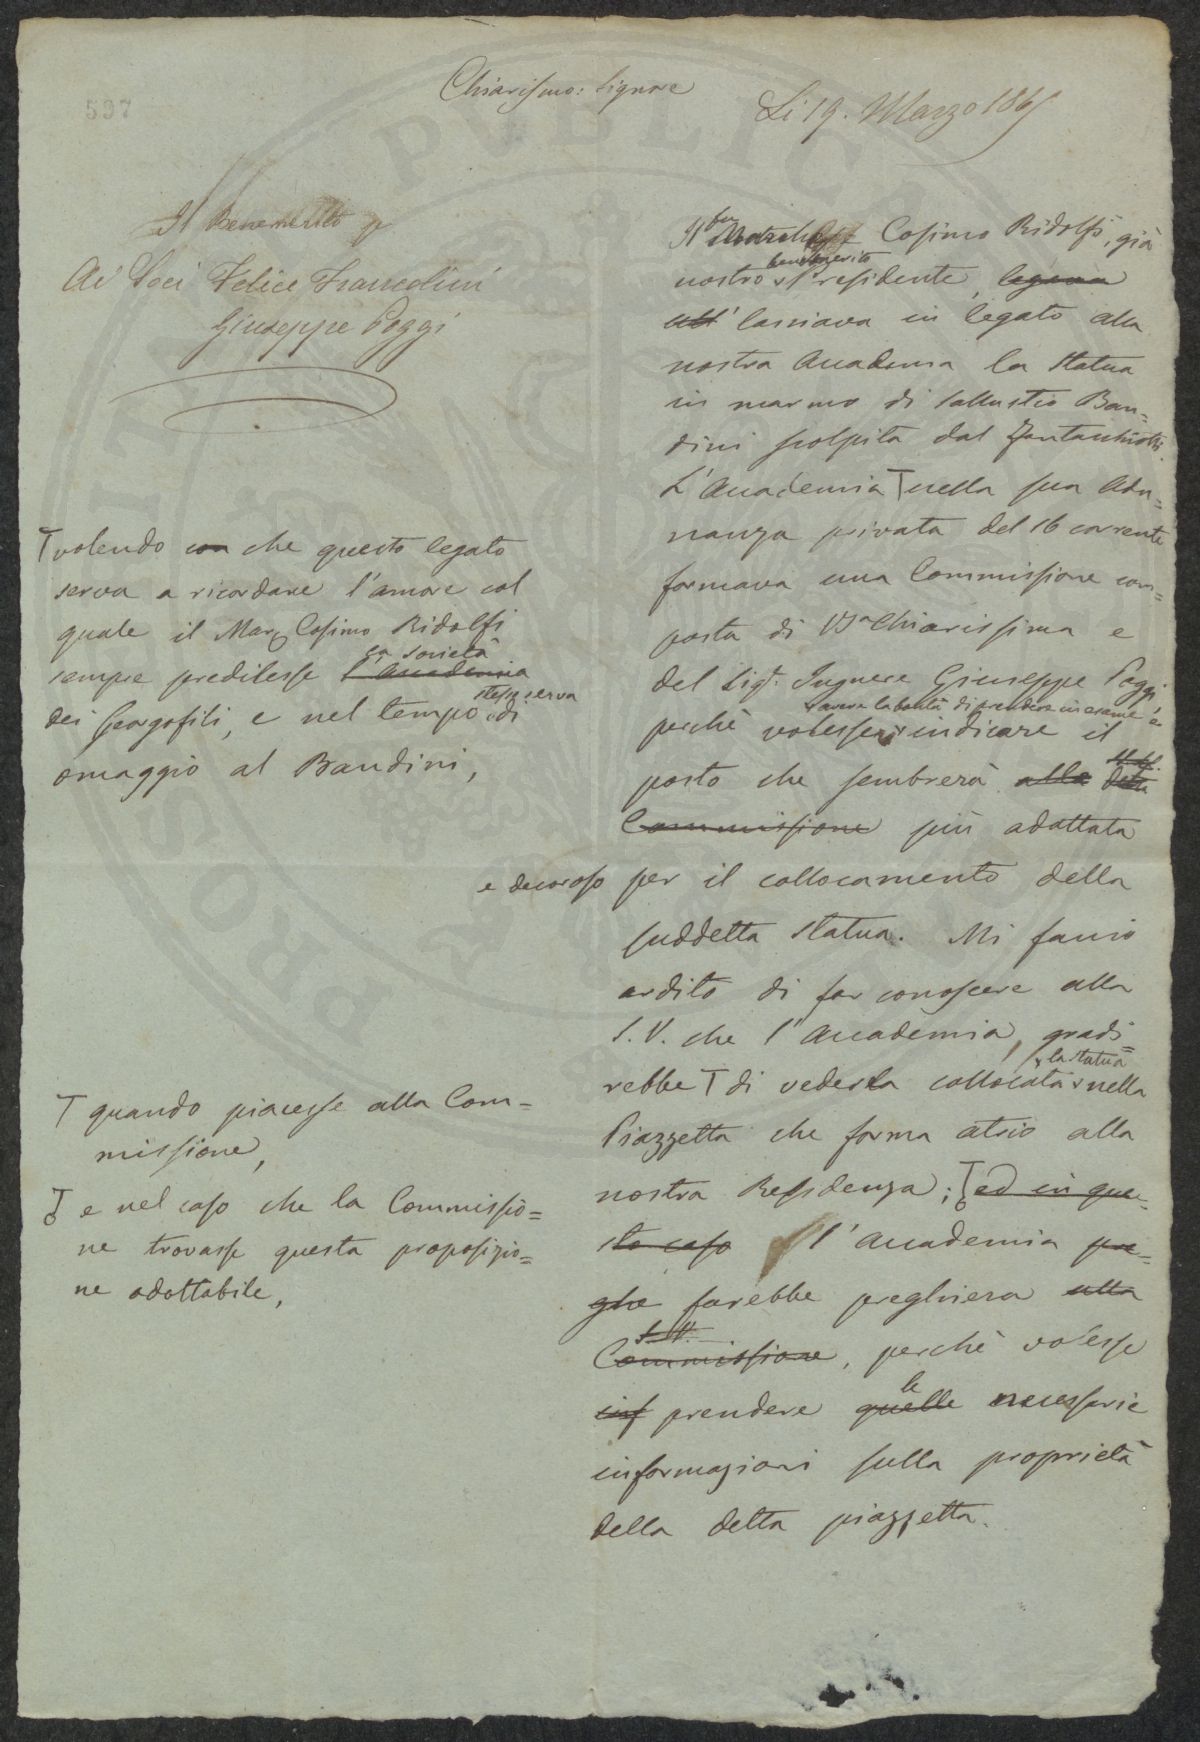 597
Chiarissmo: Signore
Li 19. Marzo 186
Il Benemerito
Ai Soci Felice Francolini
Giuseppe Poggi
Il fu Marchese Cosimo Ridolfi, già
benemerito
nostro Presidente, legava
all' lasciava in legato alla
nostra Accademia la Statua
in marmo di Sallustio Ban=
dini scolpita dal Fantacchiotti.
L'Accademia T nella sua Adu=
nanza privata del 16 corrente
formava una Commissione com=
posta di VS Chiarissima e
del Sigr. Ingnere Giuseppe Poggi
avere la bontà di prendere in esame e
perchè volesse indicare il
posto che sembrerà alla detta
Commissione più adattata
e decoroso per il collocamento della
suddetta statua. Mi faccio
ardito di far conoscere alla
S.V. che l'Accademia, gradi=
la statua
rebbe T di vederla collocata nella
Piazzetta che forma atrio alla
nostra Residenza; ed in que=
sto caso l'Accademia pre=
ghe farebbe preghiera alla
S.V.
Commissione, perchè volesse
le
inf prendere quelle necessarie
informazioni sulla proprietà
della detta piazzetta.
T volendo con che questo legato
serva a ricordare l'amore col
quale il Marc Cosimo Ridolfi
la società
sempre predilesse l'Accademia
stesso serva
dei Georgofili, e nel tempo di
omaggio al Bandini,
T quando piacesse alla Com=
missione,
e nel caso che la Commissio=
ne trovasse questa proposizio=
ne adottabile,